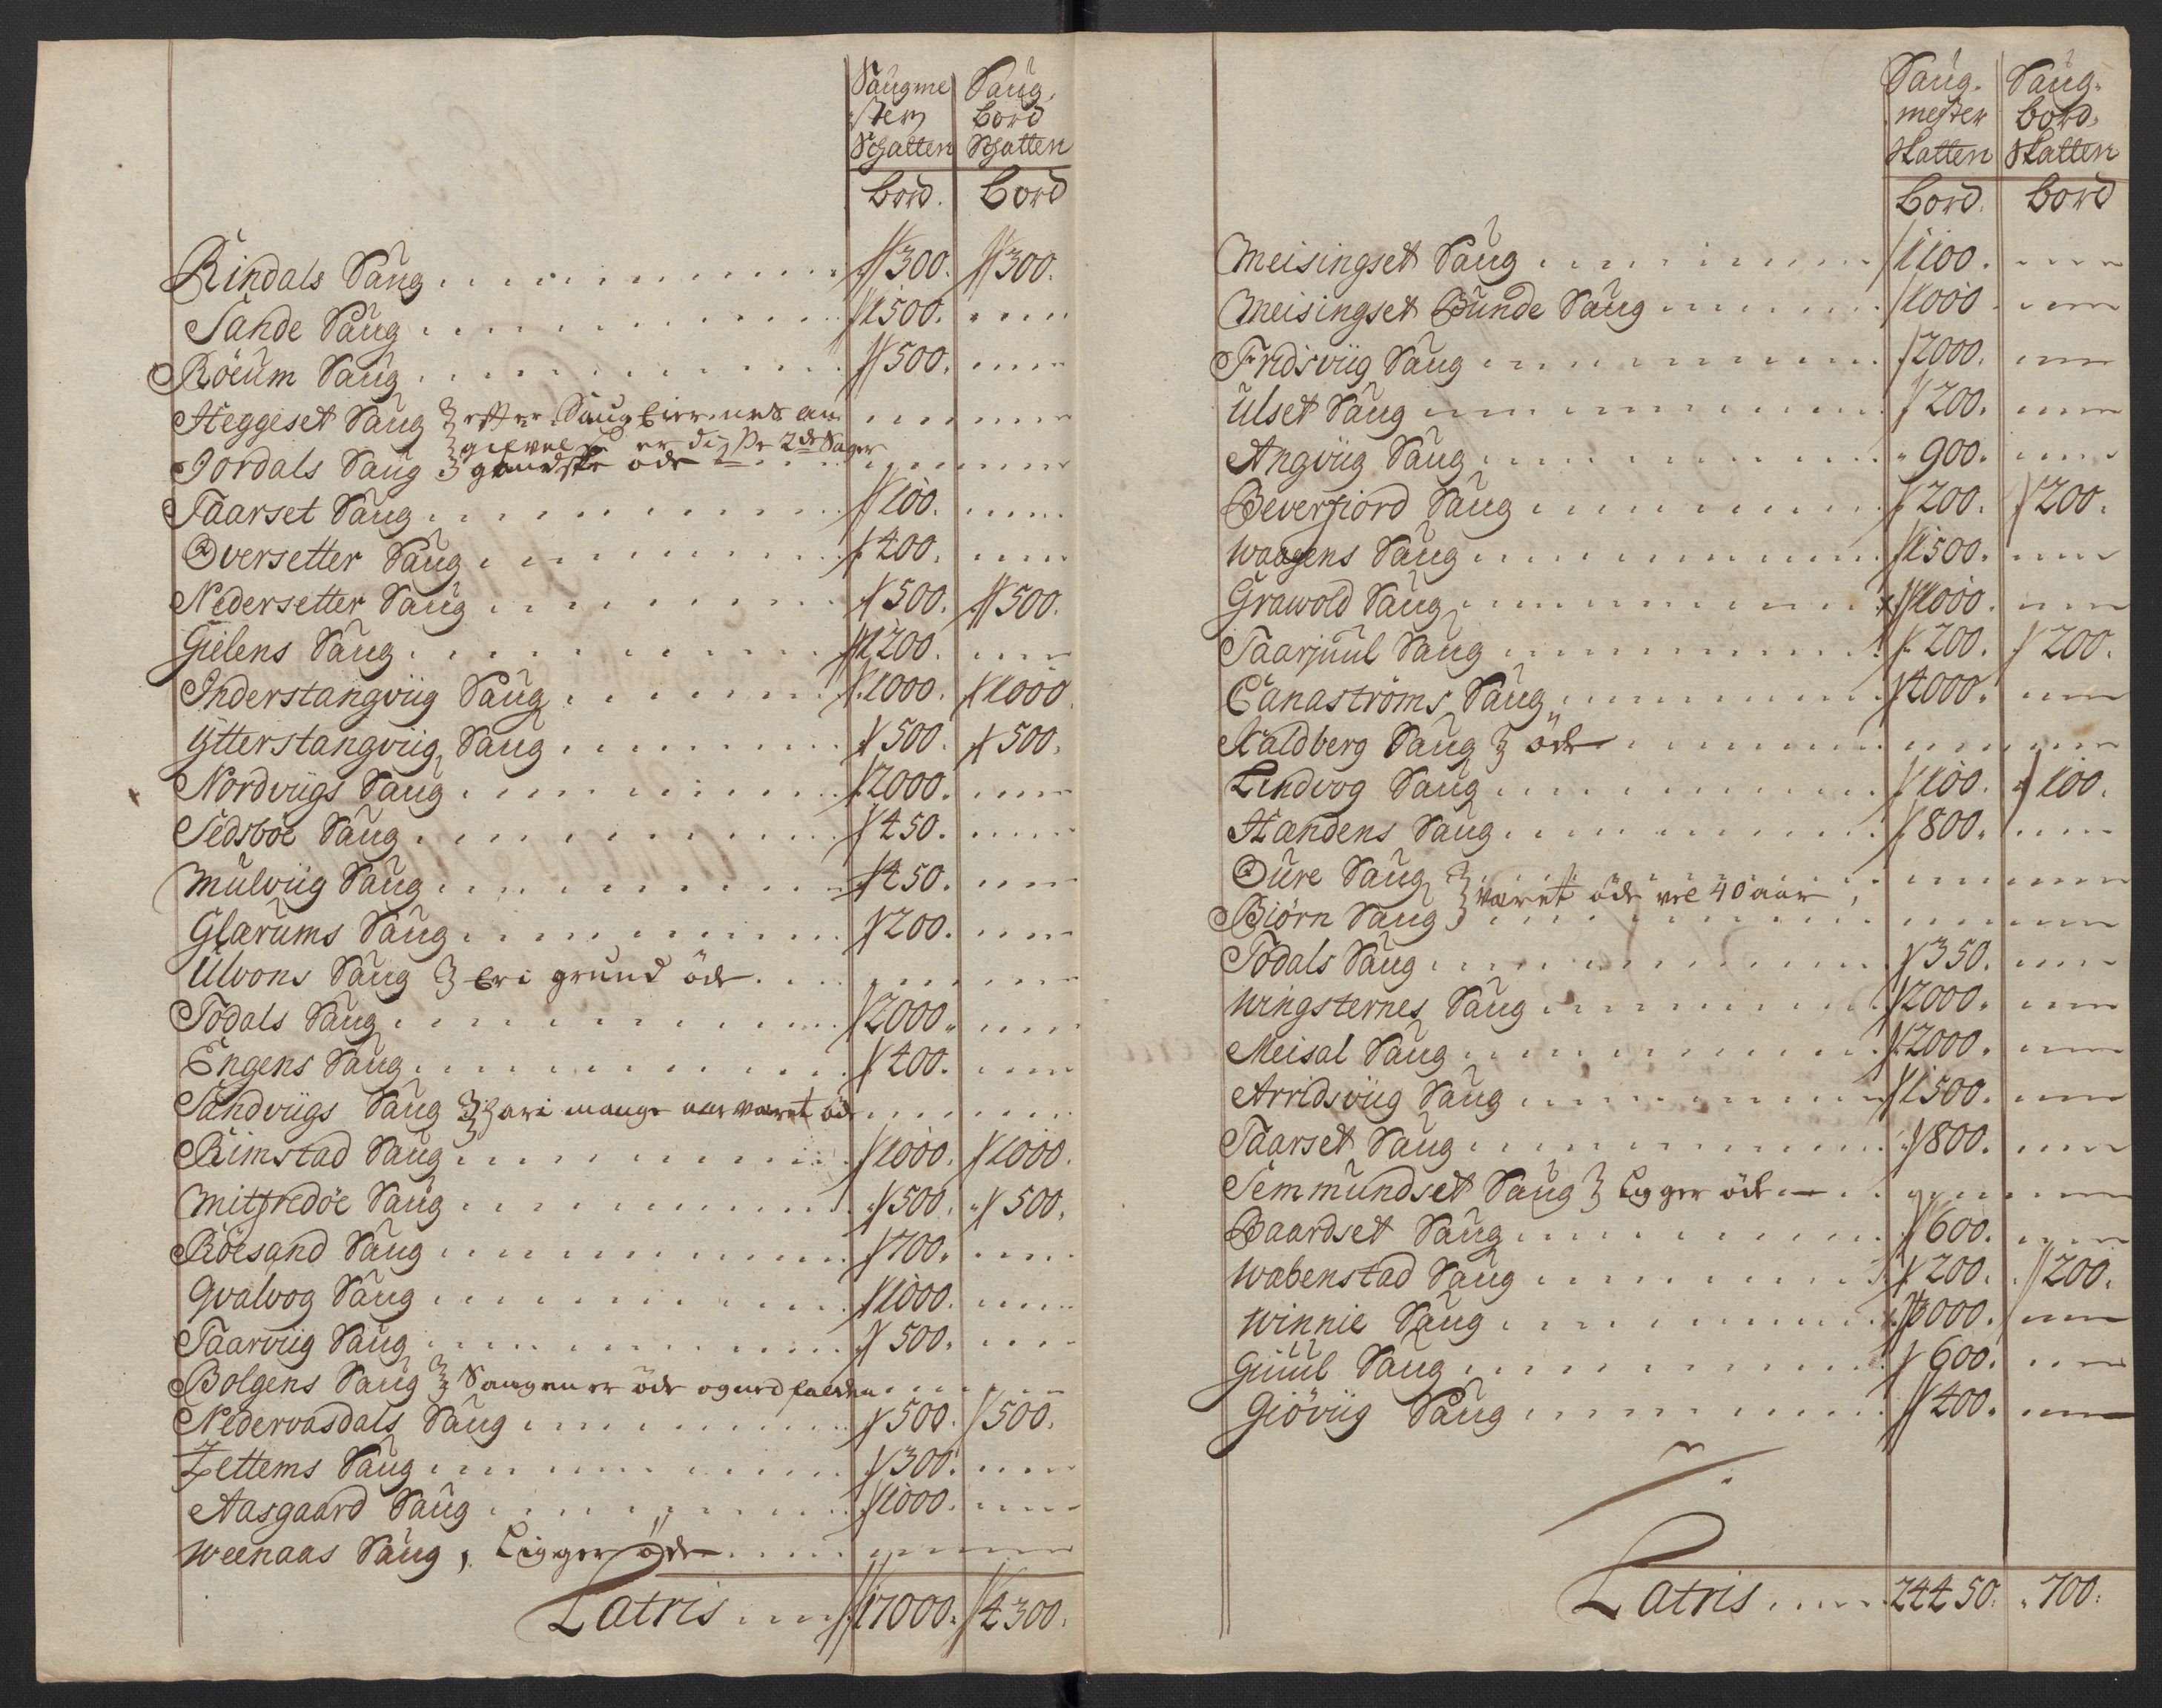 Saugme Saug
ster Bord
Schatten Schatten
Bord. Bord
Rindals Saug 300. 300.
Sande Saug 1500.
Röeum Saug 500.
Heggeset Saug } efter Saug Eiernes an
givelse er disse 2de Sauger
Jordals Saug } gandske öde
Taarset Saug 100.
Oversetter Saug 400.
Nedersetter Saug 500. 500.
Gielens Saug 1200.
Inderstangviig Saug 1000. 1000
Ytterstangviig Saug 500. 500.
Nordviigs Saug 2000.
Sedsböe Saug 450.
Mulviig Saug 450.
Glærums Saug 200.
Ulvons Saug } Er i grund öde
Todals Saug 2000.
Engens Saug 400.
Sandviigs Saug } har i mange aar været öde
Rimstad Saug 1000. 1000.
Mitfredöe Saug 500. 500.
Röesand Saug 700.
Qvalvog Saug 1000.
Taarviig Saug 500.
Bolgens Saug } Saugen er öde og nedfalden
Nedervasdals Saug 500. 500.
Zettems Saug 300.
Aasgaard Saug 1000.
Weenaas Saug, Ligger öde
Latris 17000. 4300.
Saug- Saug-
mester bord,
skatten Skatten
Bord. Bord
Meisingset Saug 1100.
Meisingset Bunde Saug 1000
Fridsviig Saug 2000.
Ulset Saug 200.
Angviig Saug 900.
Beverfiord Saug 200. 200.
Waagens Saug 1500.
Grawold Saug 1000.
Taarjuul Saug 200. 200.
Canaströms Saug 4000.
Kaldberg Saug } öde
Lindvog Saug 100. 100.
Handens Saug 800.
Oure Saug }
Været öde vel 40 aar,
Biörn Saug }
Todals Saug 350.
Wingsternes Saug 2000.
Meisal Saug 2000.
Arridsviig Saug 1500.
Taarset Saug 800.
Semmundset Saug } Ligger öde
Baardset Saug 600.
Wabenstad Saug 200. 200.
Winnie Saug 3000.
Giuul Saug 600.
Giöviig Saug 400.
Latris 24450. 700.